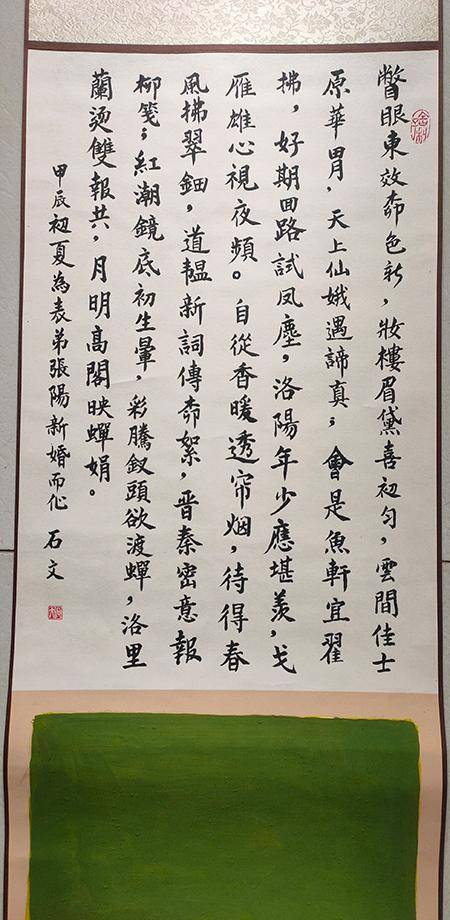 瞥眼東效奔色新，妝樓眉黛喜初勻，雲間佳士
原華胃，天上仙娥遇諦真；會是魚軒宜翟
拂，好期回路試凤塵，洛陽年少應堪羨，弋
雁雄心視夜頻。自從香暖透帘烟，待得春
風拂翠鈿，道韞新詞傳奔絮，晋秦密意報
柳箋；紅潮鏡底初生暈，彩騰釵頭欲渡蟬，洛里
蘭燙雙報共，月明高閣映蟬娟。
甲辰初夏為表弟張陽新婚而作 石文